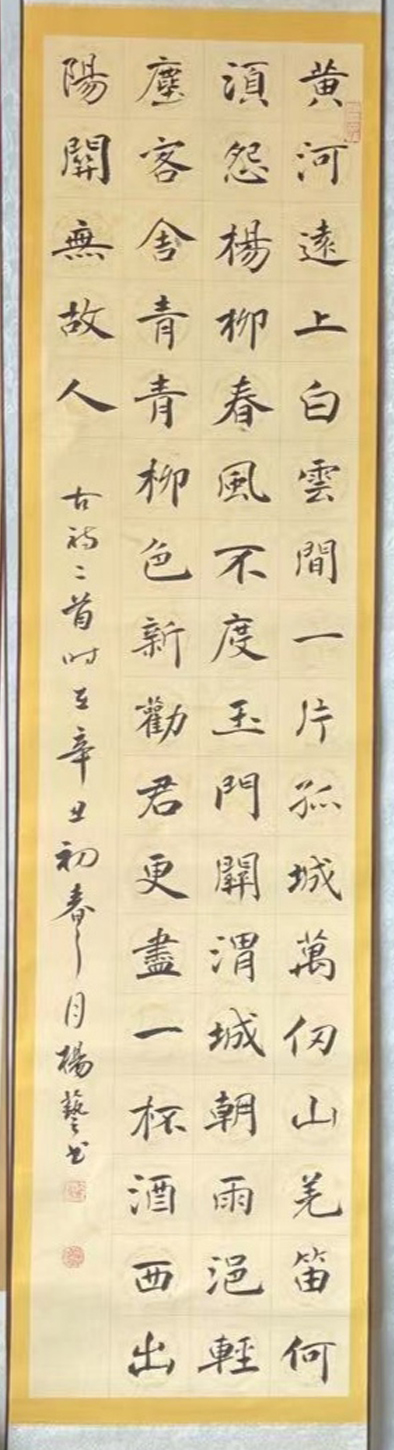 黃河遠上白雲間一片孤城萬仞山羌笛何
須怨楊柳春風不度玉門關渭城朝雨浥輕
塵客舍青青柳色新勸君更盡一杯酒西出
陽關無故人
古詩二首時在辛丑初春之月楊藝書